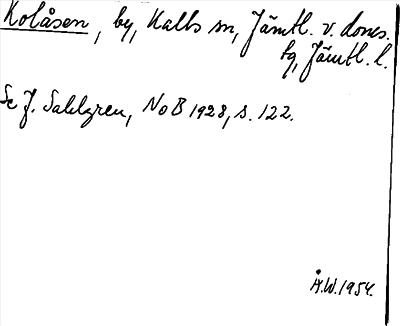 Kolåsen, by, Kalls sn, Jämtl. v. doms.
tg, Jämtl. l.
Se J. Sahlgren, NoB 1928, s. 122.
Å.W. 1954.